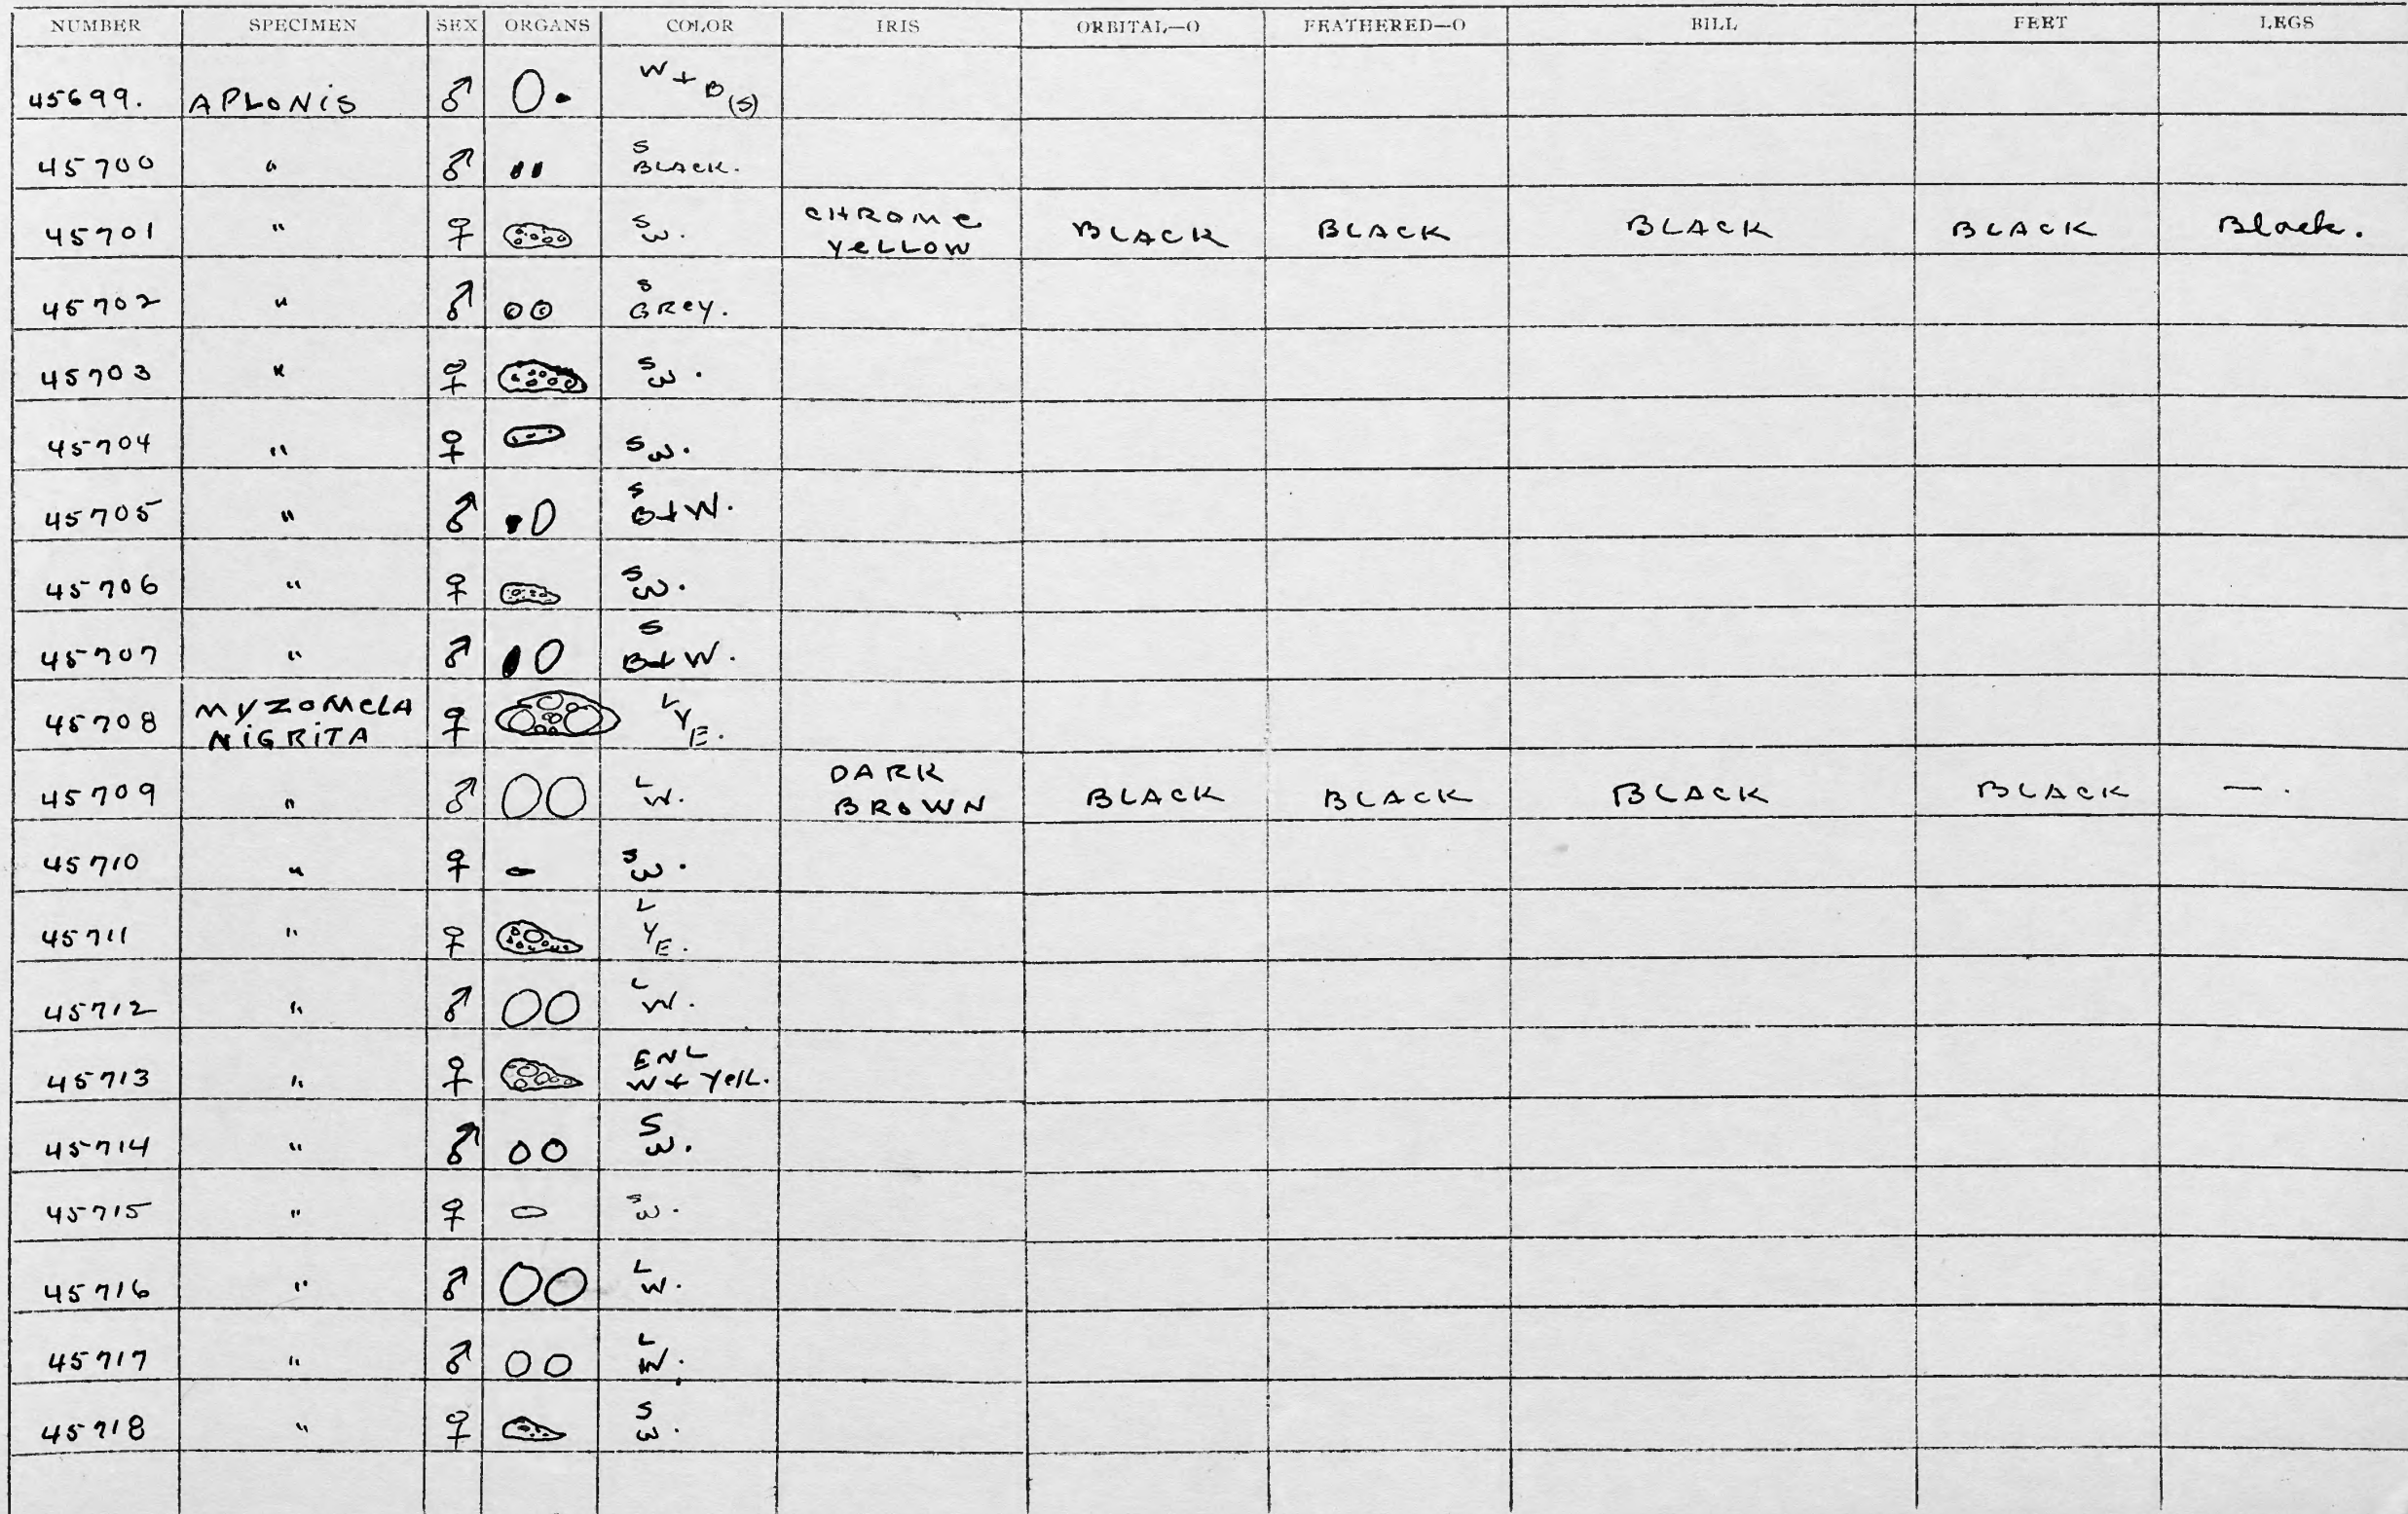 NUMBER SPECIMEN SEX ORGANS COLOR IRIS ORBITAL—O FEATHERED—O BILL FEET LEGS
45699. APLONIS ♂ W + B (S)
45700 " ♂ S BLACK.
45701 " ♀ S W. CHROME YELLOW BLACK BLACK BLACK BLACK Black.
45702 " ♂ S GREY.
45703 " ♀ S W.
45704 " ♀ S W.
45705 " ♂ S B + W.
45706 " ♀ S W.
45707 " ♂ S B + W.
45708 MYZOMELA NIGRITA ♀ L Y E.
45709 " ♂ L W. DARK BROWN BLACK BLACK BLACK BLACK — .
45710 " ♀ S W.
45711 " ♀ L Y E.
45712 " ♂ L W.
45713 " ♀ ENL W + YELL.
45714 " ♂ S W.
45715 " ♀ S W.
45716 " ♂ L W.
45717 " ♂ L W.
45718 " ♀ S W.